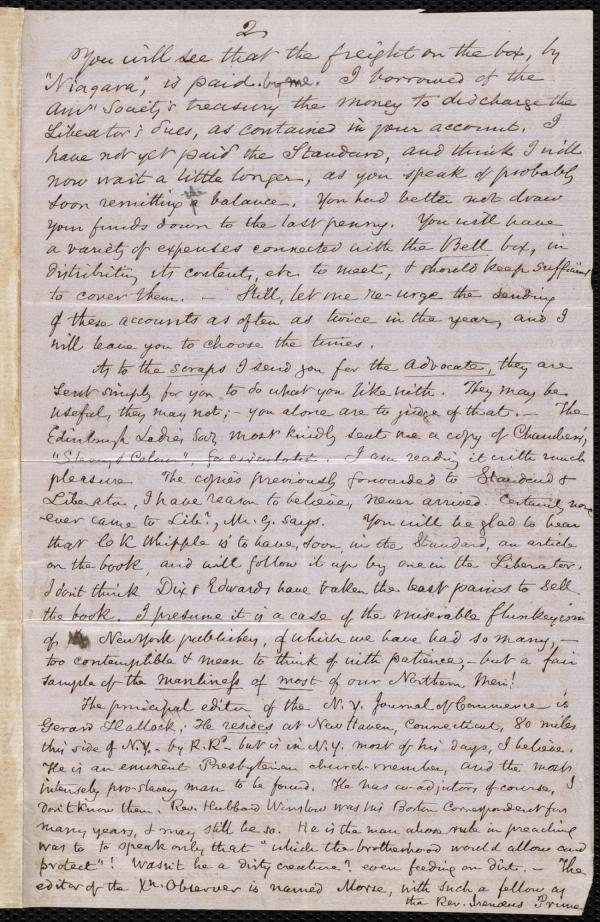 2
You will see that the freight on the box, by
"Niagara", is paid by me. I borrowed of the
Amn Society's treasury the money to discharge the
Liberator's dues, as contained in your account. I
have not yet paid the Standard, and think I will
now wait a little longer, as you speak of probably
soon remitting the balance. You had better not draw
your funds down to the last penny. You will have
a variety of expenses connected with the Bell box, in
distributing its contents, etc. to meet, & should keep sufficient
to cover them. — Still, let me re-urge the sending
of these accounts as often as twice in the year, and I
will leave you to choose the times.
As to the scraps I send you for the Advocate, they are
sent simply for you to do what you like with. They may be
useful, they may not; – you alone are to judge of that. — The
Edinburgh Ladies Socy most kindly sent me a copy of Chambers'
"Slavery & Colour", for circulation. I am reading it with much
pleasure. The copies previously forwarded to Standard &
Liberator, I have reason to believe, never arrived. Certainly none
ever came to Libr., Mr. G. says. You will be glad to hear
that C K Whipple is to have, soon, in the Standard, an article
on the book, and will follow it up by one in the Liberator.
I don't think Dix & Edwards have taken the least pains to sell
the book. I presume it is a case of the miserable flunkeyism
of New York publishers, of which we have had so many, —
too contemptible & mean to think of with patience, – but a fair
sample of the manliness of most of our Northern men!
The principal editor of the N.Y. Journal of Commerce is
Gerard Hallock. He resides at New Haven, Connecticut, 80 miles
this side of N.Y. – by R.Rd – but is in N.Y. most of his days, I believe.
He is an eminent Presbyterian church-member, and the most
intensely pro-slavery man to be found. He has co-adjutors of course, I
don't know them. Rev. Hubbard Winslow was his Boston Correspondent for
many years, & may still be so. He is the man whose rule in preaching
was to to speak only that "which the brotherhood would allow and
protect"! Wasn't he a dirty creature? even feeding on dirt. – The
editor of the Xn. Observer is named Morse, with such a fellow as
the Rev. Irenaeus Prime